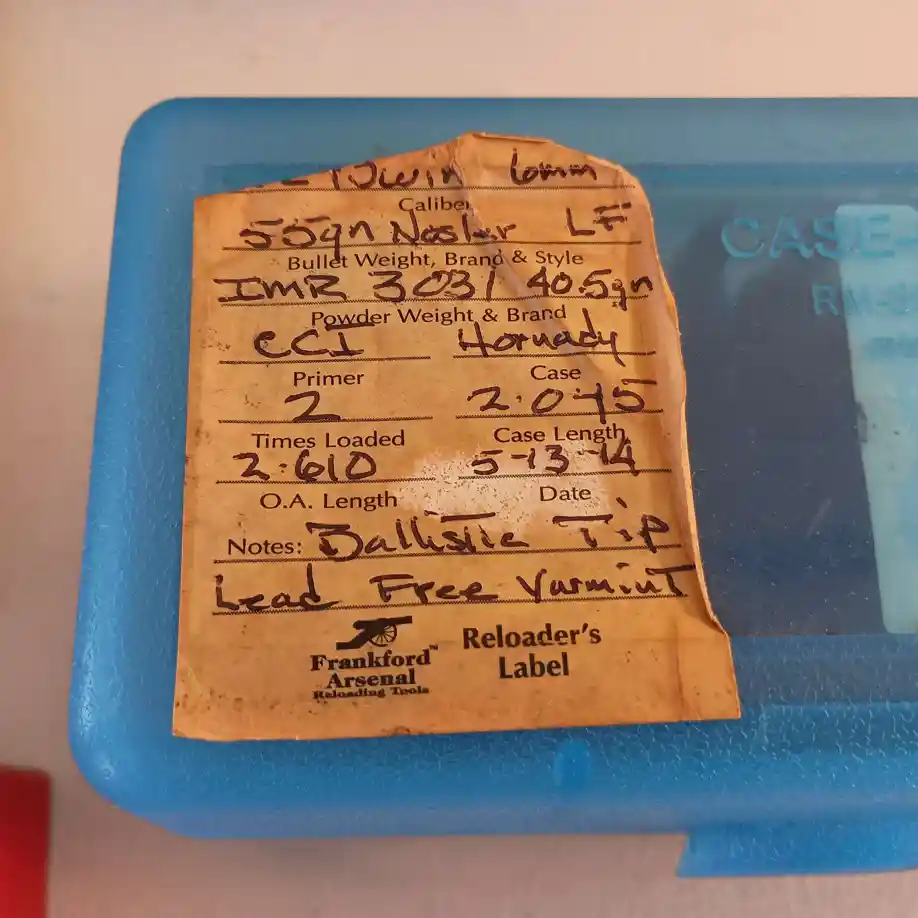 6mm
Caliber
55gn Nosler LF
Bullet Weight, Brand & Style
IMR 3031 40.5gn
Powder Weight & Brand
CCI Hornady
Primer Case
2 2.045
Times Loaded Case Length
2.610 5-13-14
O.A. Length Date
Notes: Ballistic Tip
Lead Free Varmint
Frankford™ Arsenal Reloading Tools
Reloader's Label
CASE-